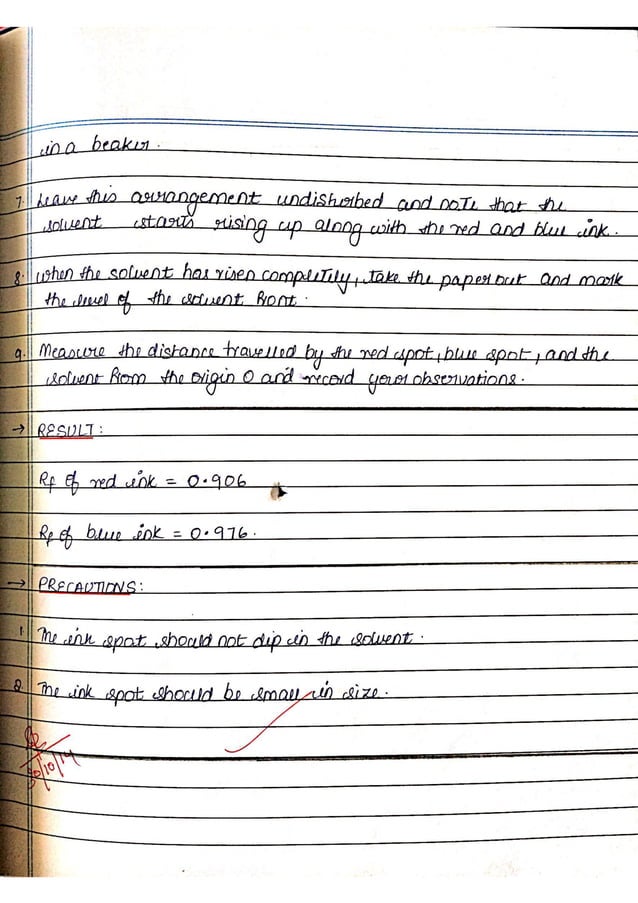 in a beaker.
7. Leave this arrangement undishorbed and note that the
solvent starts rising up along with the red and blue ink.
8. When the solvent has risen completely, take the paper out and mark
the level of the solvent front.
9. Measure the distance travelled by the red spot, blue spot, and the
solvent from the origin O and record your observations.
→ RESULT:
Rf of red ink = 0.906
Rf of blue ink = 0.976.
→ PRECAUTIONS:
1. The ink spot should not dip in the solvent.
2. The ink spot should be small in size.
30/10/14